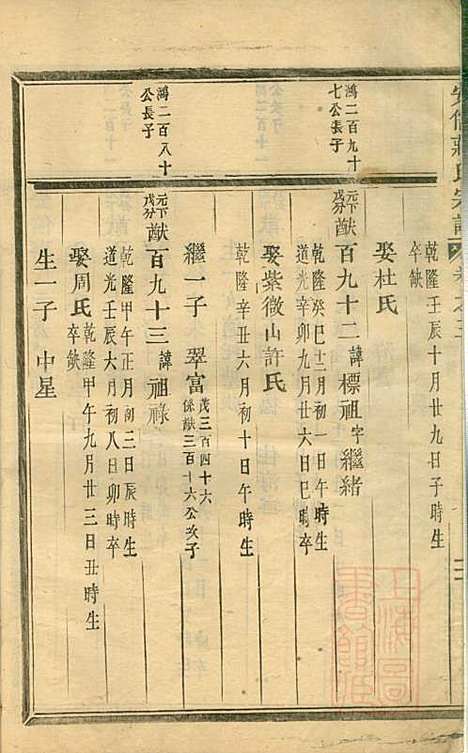 莊氏宗譜
卷之三
乾隆壬辰十月廿九日子時生
卒缺
娶杜氏
鴻二百九十
七公長子
元下
戊分
猷百九十二 諱標祖 字繼緒
乾隆癸巳十二月初一日午時生
道光辛卯九月廿六日巳時卒
娶紫微山許氏
乾隆辛丑六月初十日午時生
繼一子 翠富
茂三百四十六
係猷三百十六公次子
鴻二百八十
公長子
元下
戊分
猷百九十三 諱祖祿
乾隆甲午正月初三日辰時生
道光壬辰六月初八日卯時卒
娶周氏
乾隆甲午九月廿三日丑時生
卒缺
生一子 中星
上海圖書館藏